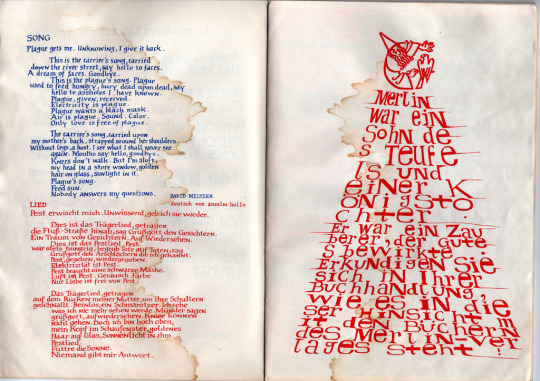 SONG
Plague gets me. Unknowing, I give it back.
This is the carrier's song, carried
down the river street, say hello to faces.
A dream of faces. Goodbye.
This is the plague's song. Plague
used to feed hungry, bury dead upon dead, say
hello to assholes I have known.
Plague, given, received.
Electricity is plague.
Plague wants a black mask.
Air is plague. Sound. Color.
Only love is free of plague.
The carrier's song, carried upon
my mother's back, strapped around her shoulders.
Without legs a host. I see what I shall never see
again. Mouths say hello, goodbye.
Knees don't walk. But I'm aloft
my head in a store window, golden
hair on glass, sunlight in it.
Plague's song.
Feed sun.
Nobody answers my questions.
DAVID MELTZER
deutsch von anselm hollo
LIED
Pest erwischt mich. Unwissend, geb ich sie wieder.
Dies ist das Trägerlied, getragen
die Fluß-Straße hinab, sag Grüßgott den Gesichtern.
Ein Traum von Gesichtern. Auf Wiedersehen.
Dies ist das Pestlied. Pest
war stets hungrig, begrub Tote auf Toten, sag
Grüßgott den Arschlöchern die ich gekannt.
Pest, gegeben, wiedergegeben.
Elektrizität ist Pest.
Pest braucht eine schwarze Maske.
Luft ist Pest. Geräusch. Farbe.
Nur Liebe ist frei von Pest.
Das Trägerlied, getragen
auf dem Rücken meiner Mutter, um ihre Schultern
geschnallt. Beinlos, ein Schmarotzer. Ich sehe
was ich nie mehr sehen werde. Münder sagen
grüßgott, aufwiedersehen. Kniee können
nicht gehen. Doch ich bin hoch oben,
mein Kopf im Schaufenster, goldenes
Haar auf Glas, Sonnenlicht in ihm
Pestlied.
Füttre die Sonne.
Niemand gibt mir Antwort.
Merlin
war ein
Sohn de
s Teufe
ls und
einer K
önigsto
chter.
Er war ein Zau
berer, der Gute
s bewirkte.
Erkundigen Sie
sich in Ihrer
Buchhandlung,
wie es in die
ser Hinsicht m
it den Büchern
des Merlin-Ver
lages steht!